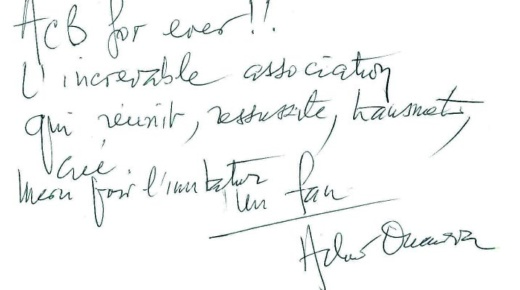 ACB for ever!!
L'increvable association
qui réunit, ressuscite, transmet,
crée
Merci pour l'invitation
un fan